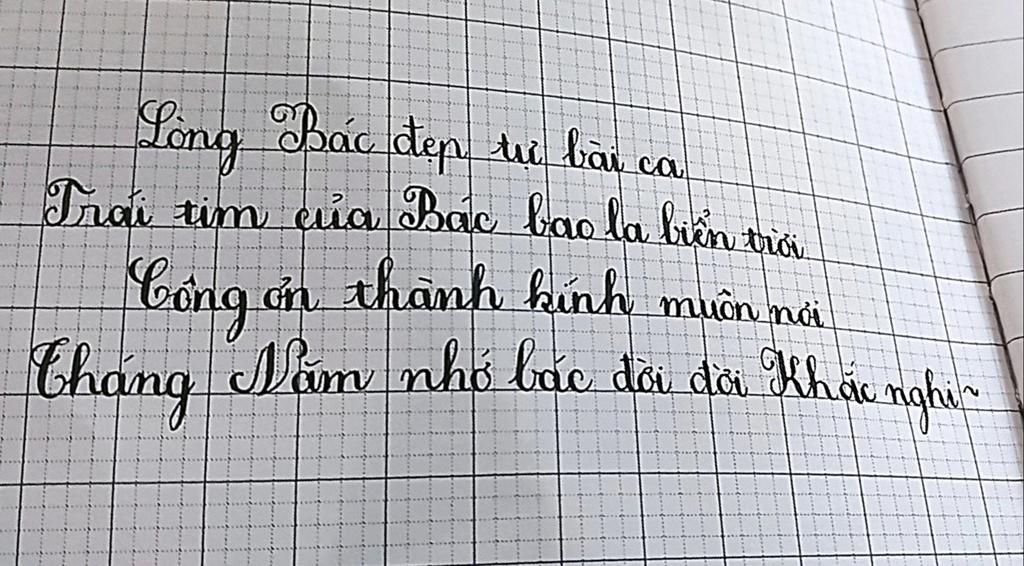 Lòng Bác đẹp tựa bài ca
Trái tim của Bác bao la biển trời
Công ơn thành kính muôn nơi
Tháng Năm nhớ bác đời đời Khắc nghi~